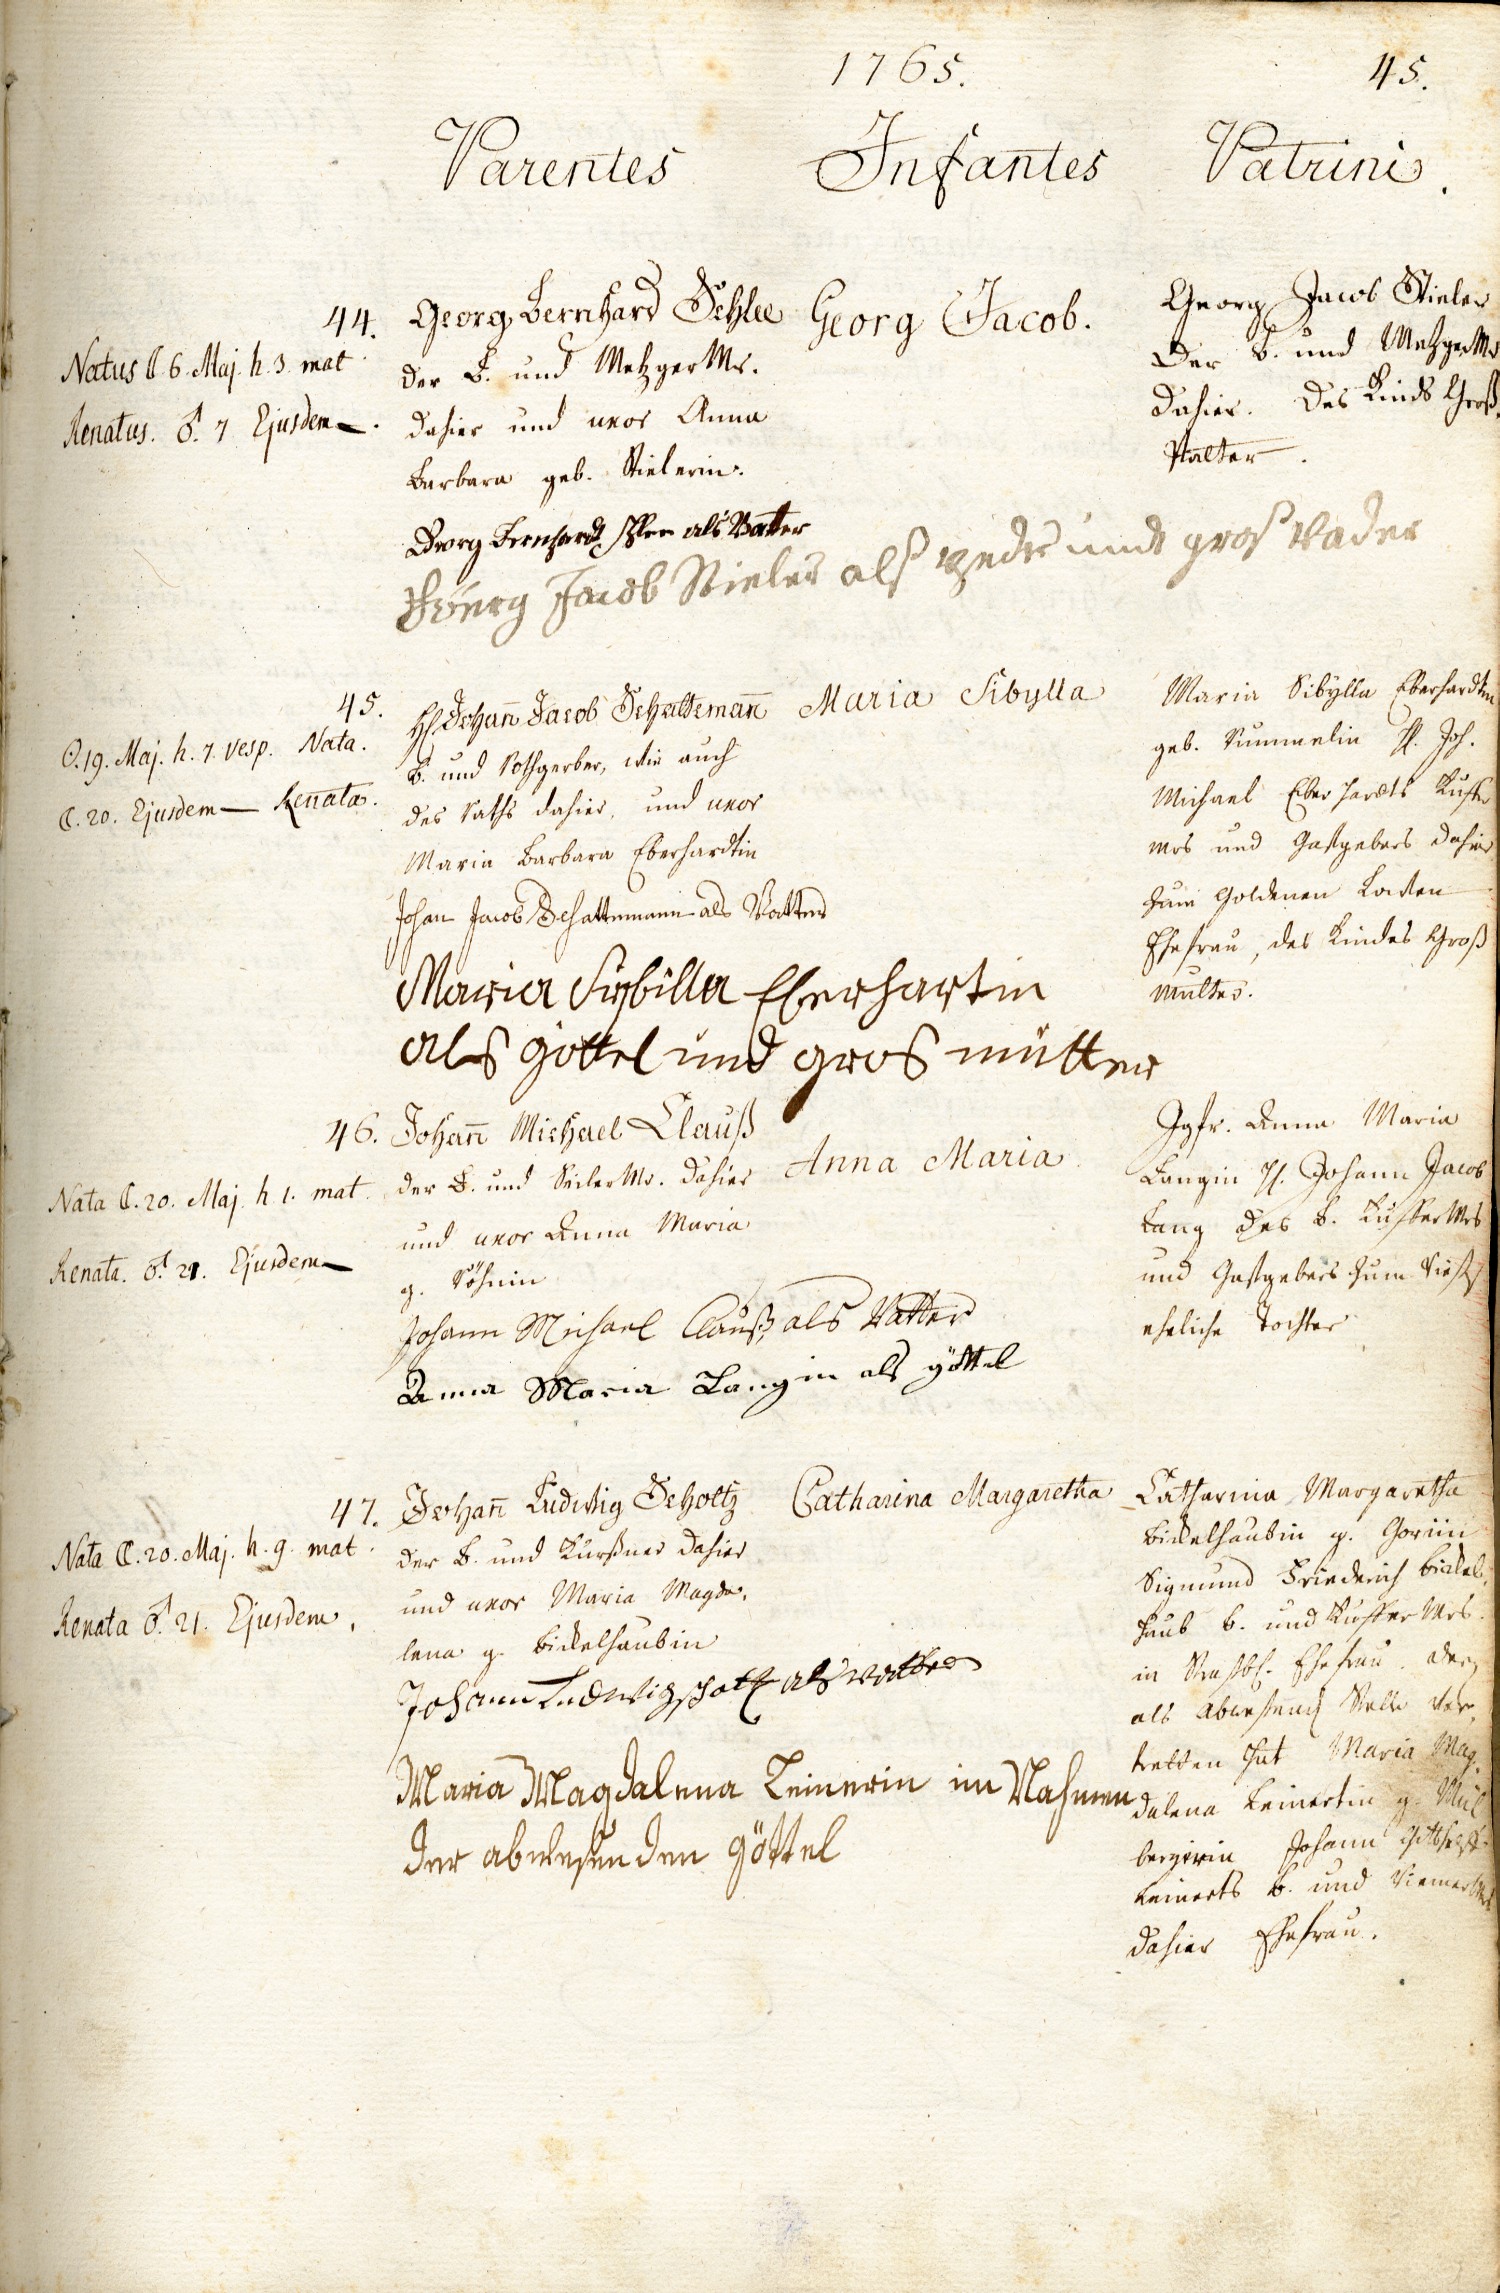 1765.
45.
Parentes Infantes Patrini.
44.
Natus ☾ 6. Maj. h. 3. mat.
Renatus. ♂. 7 Ejusdem.
Georg Bernhard Schlee
der B. und Metzger Mr.
dahier und uxor Anna
Barbara geb. Stielerin.
Georg Jacob.
Georg Jacob Stieler
der B. und Metzger Mr
dahier. des Kinds Groß-
Vatter.
Georg Bernhardt Schlee als Vatter
Georg Jacob Stieler alß und groß Vader
45.
☉. 19. Maj. h. 7. vesp. Nata.
☾. 20. Ejusdem Renata.
H. Johañ Jacob Schattemañ
B. und Rothgerber, wie auch
des Raths dahier, und uxor
Maria Barbara Eberhardtin
Maria Sibylla
Maria Sibylla Eberhardtin
geb. H. Joh.
Michael Eberhardts Kuffer
mrs und Gastgebers dahier
zum Goldenen
Ehefrau, des Kindes Groß
mutter.
Johan Jacob Schattenmann als Vatter
Maria Sibilla Eberhartin
als göttel und gros mütter
46.
Nata ☾. 20. Maj. h. 1. mat.
Renata. ♂. 21. Ejusdem
Johañ Michael Clauß
der B. und Seiler Mr. dahier
und uxor Anna Maria
g.
Anna Maria
Jgfr. Anna Maria
Langin H. Johann Jacob
Lang des B. Kuffer Mrs
und Gastgebers zum
eheliche Tochter
Johann Michael Clauß, als Vatter
Anna Maria Langin als göttel
47.
Nata ☾. 20. Maj. h. 9. mat.
Renata ♂. 21. Ejusdem.
Johañ Ludwig Scholtz
der B. und Kürßner dahier
und uxor Maria Magda-
lena g. Bickelhaubin
Catharina Margaretha
Catharina Margaretha
Bickelhaubin g.
Sigmund Friederich Bickel-
haub B. und Kuffer Mrs.
in Straßb. Ehefrau. deren
als Abwesend Stelle ver-
tretten hat Maria Mag-
dalena Leinertin g. Mül
bergerin Johann
Leinerts B. und
dahier Ehefrau.
Johann Ludwig scholtz als vatter
Maria Magdalena Leinerin im Nahmen
der abwesenden Göttel